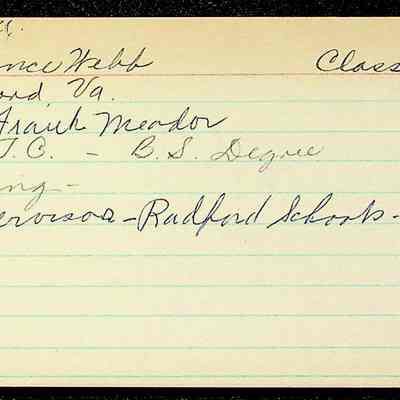 nce Webb Class
ord, Va.
Frank Meador
T.C. - B.S. Degree
ing -
ervisor - Radford Schools -